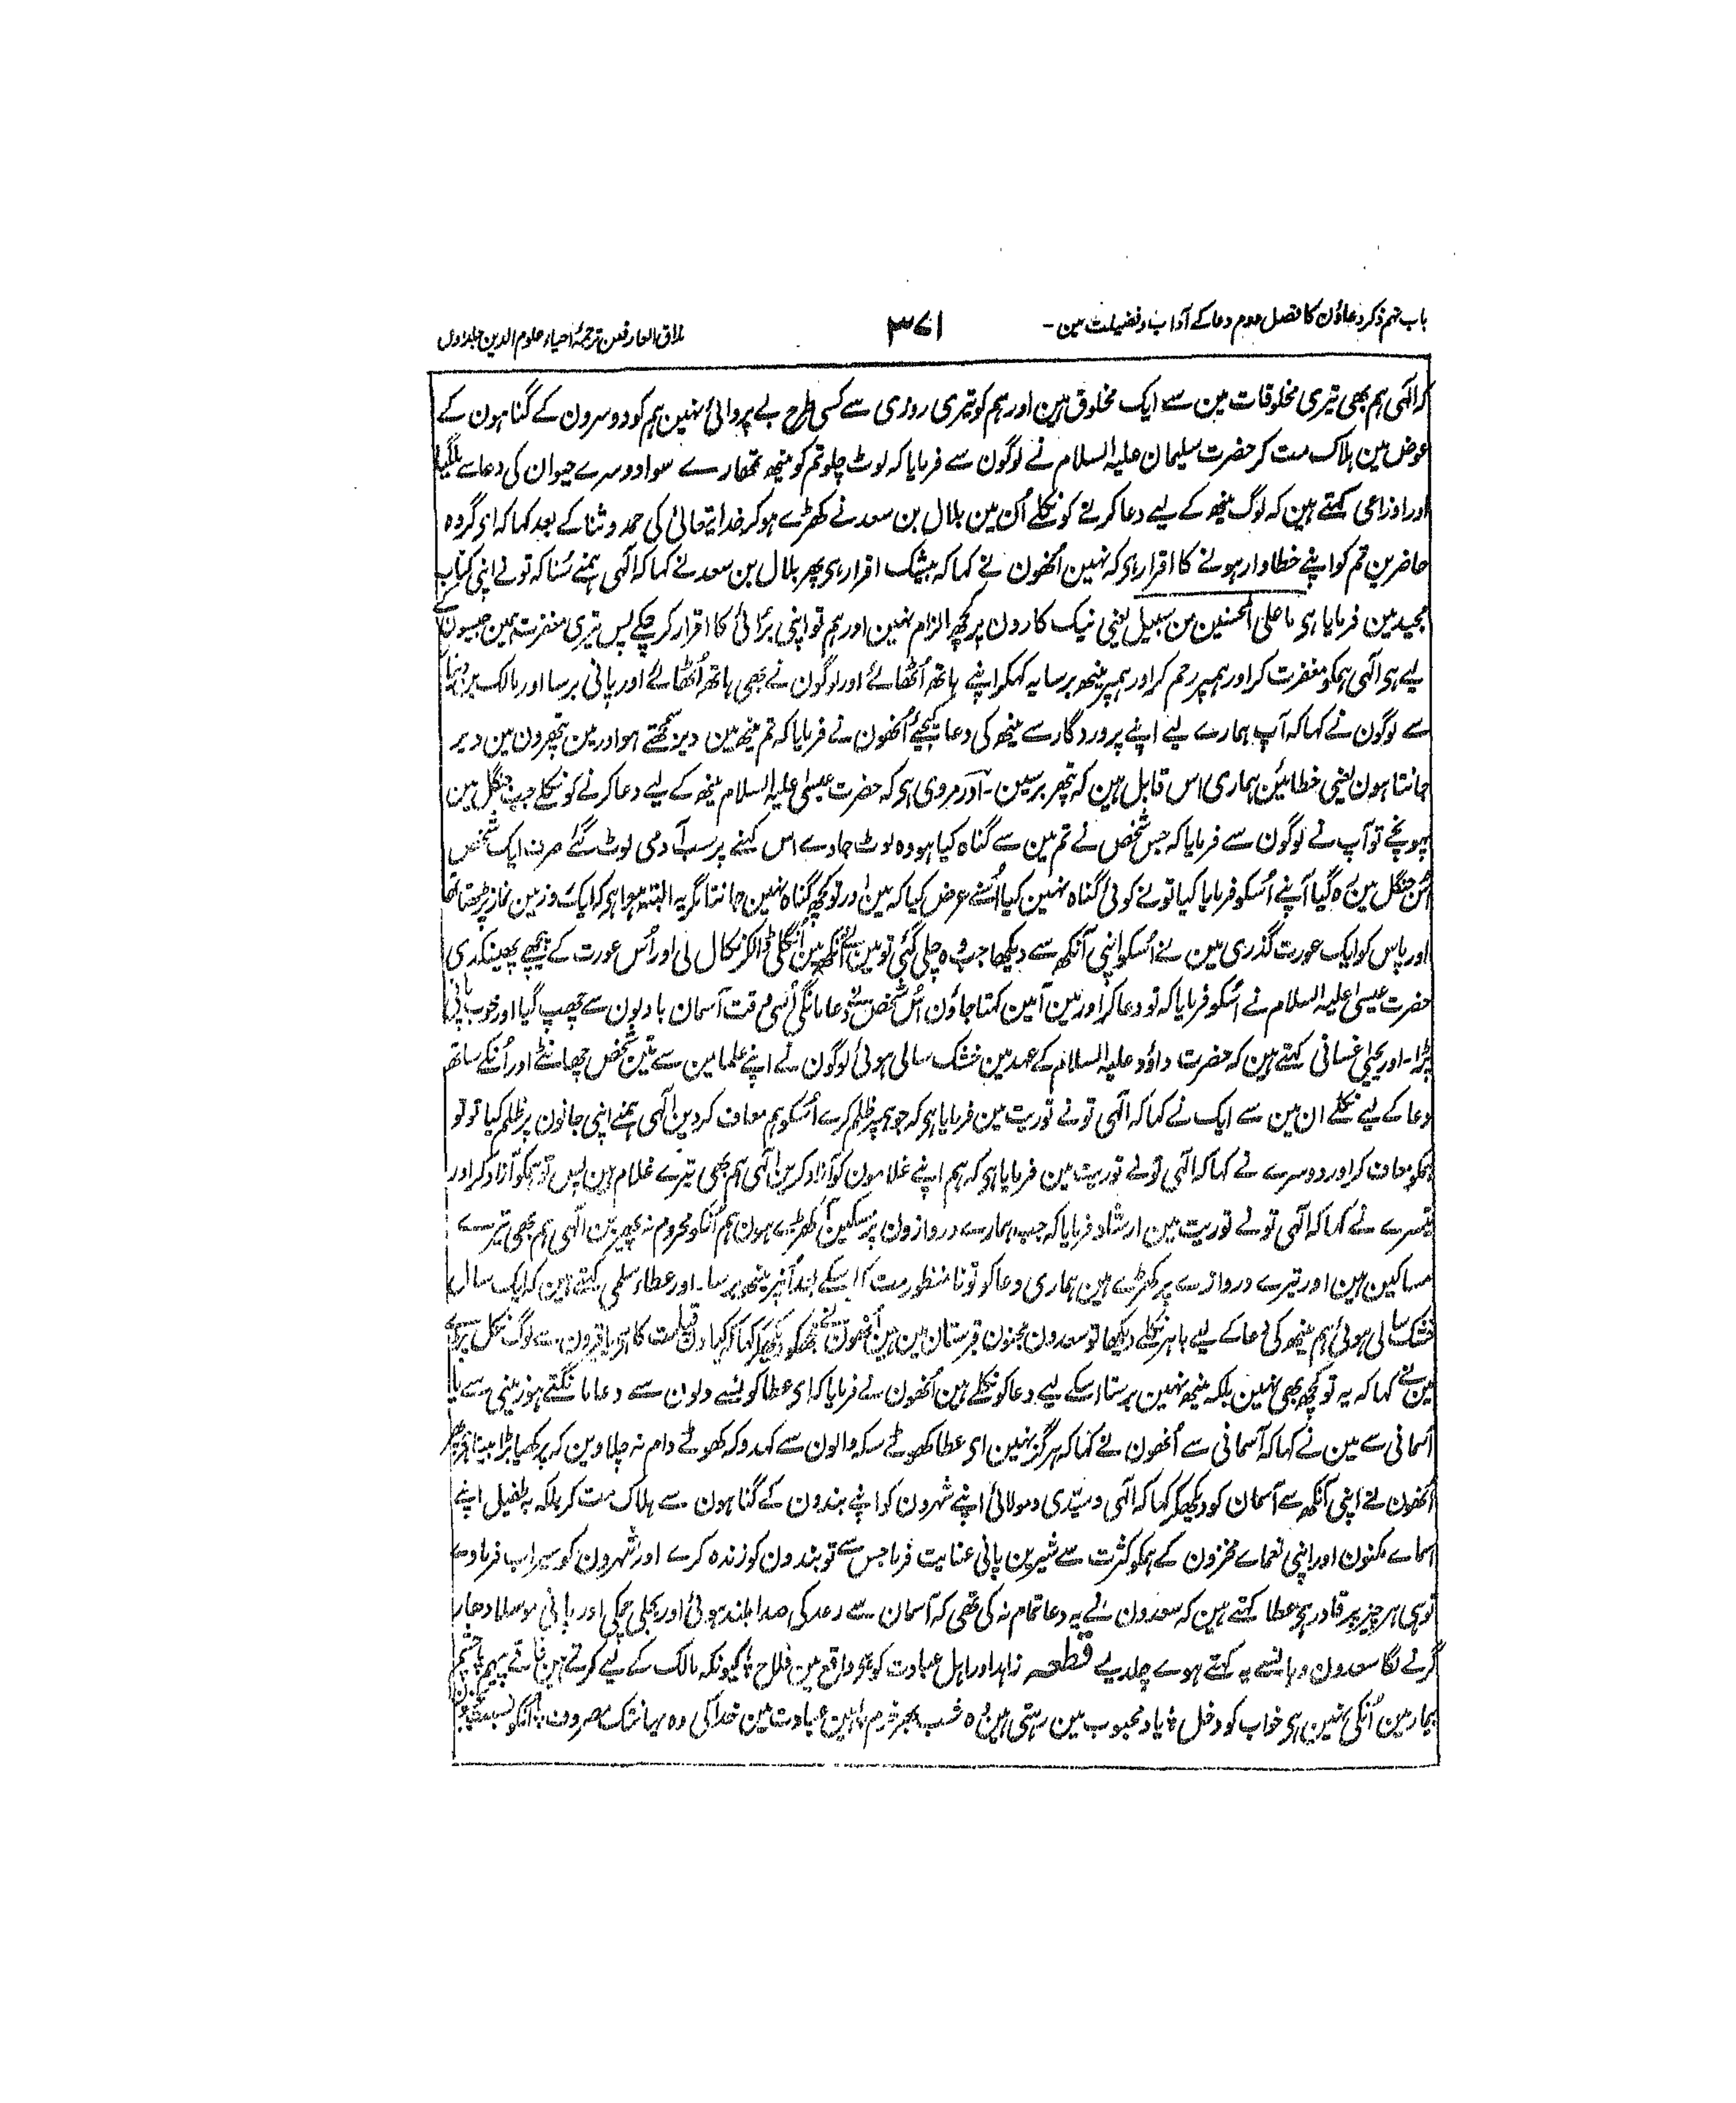 باب نہم ذکر دعاؤن کا فصل دوم دعا کے آداب و فضیلت مین -
۳۷۱
مذاق العارفین ترجمۂ احیاء علوم الدین جلد اول
کہ الٰہی ہم بھی تیری مخلوقات مین سے ایک مخلوق ہین اور ہم کو تیری روزی سے کسی طرح بے پروائی نہین ہم کو دوسرون کے گناہون کے
عوض مین ہلاک مت کر حضرت سلیمان علیہ السلام نے لوگون سے فرمایا کہ لوٹ چلو تم کو مینھ تمھارے سوا دوسرے حیوان کی دعا سے ملگیا
اور اوزاعی کہتے ہین کہ لوگ مینھ کے لیے دعا کرنے کو نکلے اُن مین بلال بن سعد نے کھڑے ہو کر خداے تعالیٰ کی حمد و ثنا کے بعد کہا کہ ای گروہ
حاضرین تم کو اپنے خطاوار ہونے کا اقرار ہی کہ نہین اُنھون نے کہا کہ بیشک اقرار ہی پھر بلال بن سعد نے کہا کہ الٰہی ہمنے سُنا کہ تو نے اپنی کتاب
مجید مین فرمایا ہی ما علی المحسنین من سبیل یعنی نیک کارون پر کچھ الزام نہین اور ہم تو اپنی برائی کا اقرار کر چکے پس تیری مغفرت ہمین جیسون کے
لیے ہی الٰہی ہمکو مغفرت کر اور ہمپر رحم کر اور ہمپر مینھ برسا یہ کہکر اپنے ہاتھ اُٹھائے اور لوگون نے بھی ہاتھ اُٹھائے اور پانی برسا اور مالک بن دینار
سے لوگون نے کہا کہ آپ ہمارے لیے اپنے پروردگار سے مینھ کی دعا کیجیے اُنھون نے فرمایا کہ تم مینھ مین دیر سمجھتے ہو اور مین پتھرون مین دیر
جانتا ہون یعنی خطائین ہماری اس قابل ہین کہ پتھر برسین - اور مروی ہی کہ حضرت عیسیٰ علیہ السلام مینھ کے لیے دعا کرنے کو نکلے جب جنگل مین
پہونچے تو آپ نے لوگون سے فرمایا کہ جس شخص نے تم مین سے گناہ کیا ہو وہ لوٹ جاوے اس کہنے پر سب آدمی لوٹ گئے صرف ایک شخص
اُس جنگل مین رہ گیا آپنے اُسکو فرمایا کیا تو نے کوئی گناہ نہین کیا اُسنے عرض کیا کہ مین اور تو کچھ گناہ نہین جانتا مگر یہ البتہ ہوا ہی کہ ایک روز مین نماز پڑھتا تھا
اور پاس کو ایک عورت گذری مین نے اُسکو اپنی آنکھ سے دیکھا جب وہ چلی گئی تو مین نے آنکھ مین اُنگلی ڈالکر نکال لی اور اُس عورت کے پیچھے پھینکدی
حضرت عیسیٰ علیہ السلام نے اُسکو فرمایا کہ تو دعا کر اور مین آمین کہتا جاؤن اُس شخص نے دعا مانگی اُسی وقت آسمان بادلون سے چھپ گیا اور خوب پانی
پڑا - اور یحییٰ غسانی کہتے ہین کہ حضرت داؤد علیہ السلام کے عہد مین خشک سالی ہوئی لوگون نے اپنے علما مین سے تین شخص چھانٹے اور اُنکے ساتھ
دعا کے لیے نکلے ان مین سے ایک نے کہا کہ الٰہی تو نے توریت مین فرمایا ہی کہ جو ہمپر ظلم کرے اُسکو ہم معاف کر دین الٰہی ہمنے اپنی جانون پر ظلم کیا تو تو
ہمکو معاف کر اور دوسرے نے کہا کہ الٰہی تو نے توریت مین فرمایا ہی کہ ہم اپنے غلامون کو آزاد کرین الٰہی ہم بھی تیرے غلام ہین پس تو ہمکو آزاد کر اور
تیسرے نے کہا کہ الٰہی تو نے توریت مین ارشاد فرمایا کہ جب ہمارے دروازون پر مسکین آ کھڑے ہون ہم اُنکو محروم نہ پھیرین الٰہی ہم بھی تیرے
مساکین ہین اور تیرے دروازے پر کھڑے ہین ہماری دعا کو تو نامنظور مت کر اسکے بعد اُنپر مینھ برسا - اور عطاء سلمی کہتے ہین کہ ایک سال
خشک سالی ہوئی ہم مینھ کی دعا کے لیے باہر نکلے دیکھا تو سعدون مجنون قبرستان مین ہین اُنھون نے مجھکو دیکھکر کہا کہ کیا دن قیامت کا ہی یا قبرون سے لوگ نکل پڑے
مین نے کہا کہ یہ تو کچھ بھی نہین بلکہ مینھ نہین برستا اسکے لیے دعا کو نکلے ہین اُنھون نے فرمایا کہ ای عطا کونسے دلون سے دعا مانگتے ہو زمینی سے یا
آسمانی سے مین نے کہا کہ آسمانی سے اُنھون نے کہا کہ ہرگز نہین ای عطا کھوٹے سکہ والون سے کہدو کہ کھوٹے دام نہ چلاوین کہ پرکھیا بڑا بینا ہی پھر
اُنھون نے اپنی آنکھ سے آسمان کو دیکھکر کہا کہ الٰہی وسیدی ومولائی اپنے شہرون کو اپنے بندون کے گناہون سے ہلاک مت کر بلکہ بہ طفیل اپنے
اسماے مکنون اور اپنی نعماے مخزون کے ہمکو کثرت سے شیرین پانی عنایت فرما جس سے تو بندون کو زندہ کرے اور شہرون کو سیراب فرماوے
تو ہی ہر چیز پر قادر ہی عطا کہتے ہین کہ سعدون نے یہ دعا تمام نہ کی تھی کہ آسمان سے رعد کی صدا بلند ہوئی اور بجلی چمکی اور پانی موسلا دھار
گرنے لگا سعدون وہانسے یہ کہتے ہوے چلدیے قطعہ زاہد اور اہل عبادت کو ہی واقع مین فلاح ؛ کیونکہ مالک کے لیے کرتے ہین فاقے پیہم ؛ چشم
بیدار مین اُنکی نہین ہی خواب کو دخل ؛ یاد محبوب مین رہتی ہین وہ شب بھر نم ؛ ہین عبادت مین خدا کی وہ یہانتک مصروف ؛